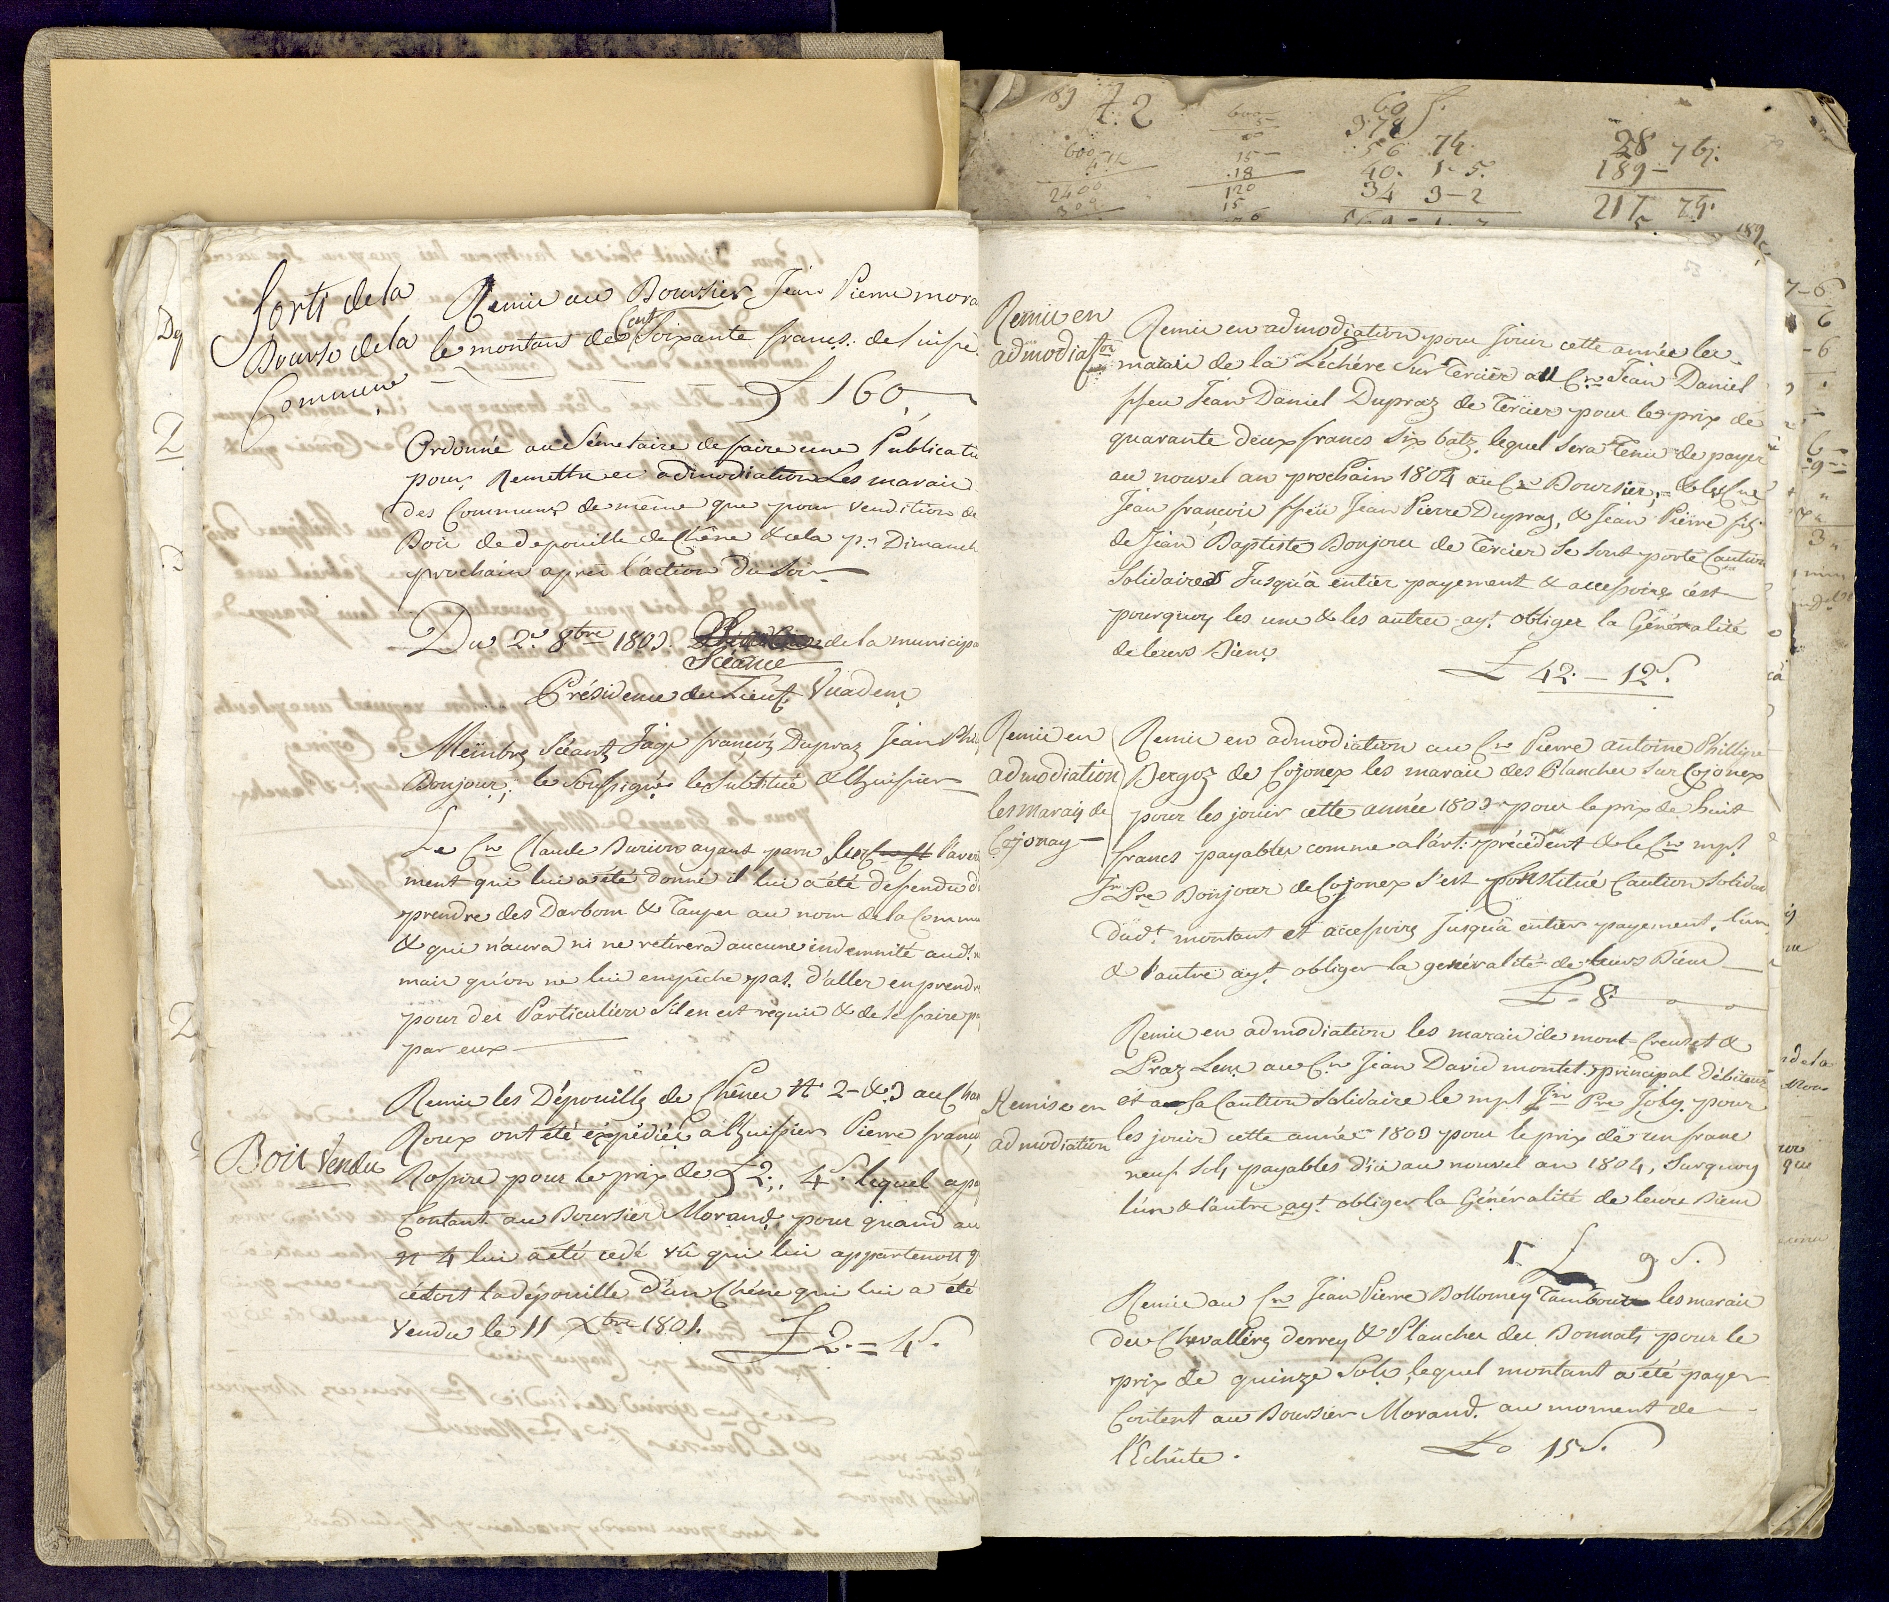 Sorti de la
Bourse de la
Commune
Remis au Boursier Jean Pierre mora
le montant de Cent Soixante francs de Suisse
L 160,
Ordonné au Secretaire de faire une Publicati
pour Remettre en admodiation Les marais
des Communs de même que pour vendition de
Bois de depouille de Chêne & cela pr. Dimanch
prochain après l'action du Soir
Du 2e 8bre 1803. Séance de la municipa
Présidence du Lieut. Vuadens
Membres Séants Jaqs françois Dupraz, Jean Phi
Bonjour; le Soussigné le Substitué & l'huissier
Le Cn Claude Buriers ayant paru sur l'aver
ment qui lui a été donné il lui a été deffendu d
prendre des Darbons & Taupes au nom de la Commu
& qui n'aura ni ne retirera aucune indemnité aud.
mais qu'on ne lui empêche pas d'aller en prendr
pour des Particuliers s'il en est requis & de se faire p
par eux
Bois Vendu
Remis les Dépouills de Chênes N 2 & 3 au Chan
Roux ont été expédiés à l'huissier Pierre franç
pour le prix de L 2 ,, 4 S. lequel a pa
Contant au Boursier Morand, pour quand au
n 4 lui a été cedé vû qui lui appartenoit
la dépouille d'un Chêne qui lui a été
Vendu le 11 Xbre 1801.
L 2 = 4 S.
189 72
600
5
60 S.
378
56 74
40. 1-5.
34 3-2
15
18
120
15
600
2400
28 76
189 -
217
Remis en
admodiation
Remis en admodiation pour jouir cette année les
marais de la Léchére Sur Tercier au Cn Jean Daniel
ffeu Jean Daniel Dupraz de Tercier pour le prix de
quarante deux francs Six batz lequel sera Tenu de payer
au nouvel an prochain 1804 au Cn Boursier, & les Cns
Jean françois ffeu Jean Pierre Dupraz, & Jean Pierre fils
de Jean Baptiste Bonjour de Tercier Se Sont porté Caution
Solidaires Jusqu'à entier payement & accessoires c'est
pourquoy les uns & les autres ayt obliger la Généralité
de leurs Biens
L 42 - 12 S.
Remis en
admodiation
les marais de
Cojonay
Remis en admodiation au Cn Pierre antoine Phillipe
Bergoz de Cojonex les marais des Planches Sur Cojonex
pour les jouir cette année 1803 pour le prix de huit
francs payables comme a l'art: précédent & le Cn mpl
Jn Pre Bonjour de Cojonex s'est Constitué Caution Solidai
dudt montant et accessoires Jusqu'à entier payement, l'un
& l'autre ayt obliger la généralité de leurs Biens
L 8
Remise en
admodiation
Remis en admodiation les marais de mont-Creuset &
Praz Lens au Cn Jean David montet principal débiteur
et a sa Caution Solidaire le mpl Jn Pre Joly, pour
les jouir cette année 1803 pour le prix de un franc
neuf Sols payables d'ici au nouvel an 1804, Surquoy
l'un & l'autre ayt obliger la Généralité de leurs Biens
1 L 9 S.
Remis au Cn Jean Pierre Bollomey Tambour les marais
des Chevallèrs derrey & Planches des Bonnats pour le
prix de quinze Sols, lequel montant a été payer
Contant au Boursier Morand. au moment de
l'Echûte.
L o 15 S.